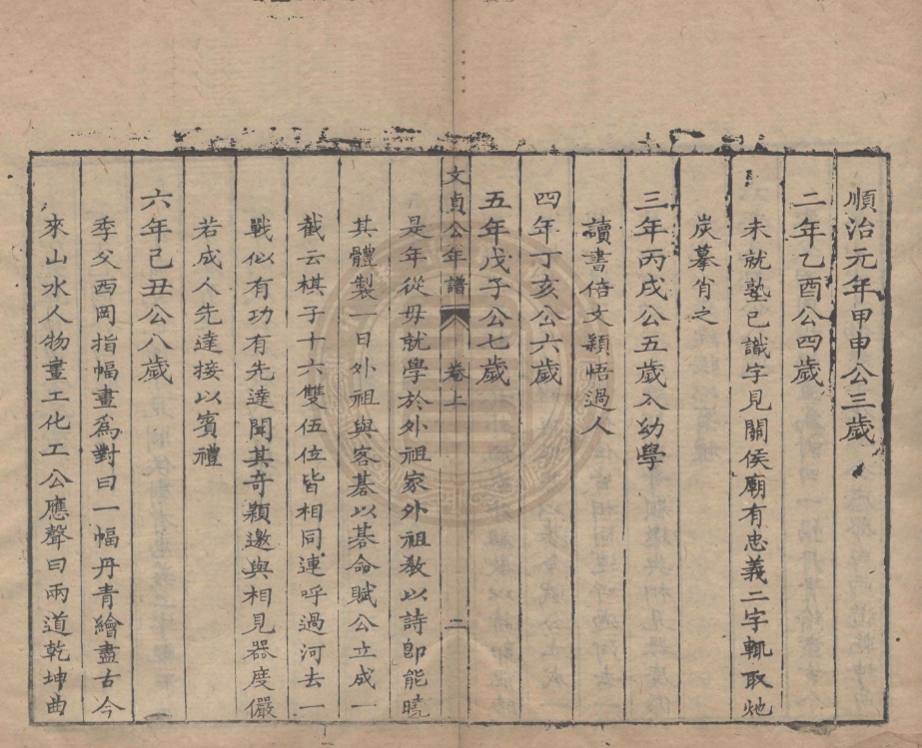 順治元年甲申公三歲
二年乙酉公四歲
未就塾已識字見關侯廟有忠義二字輒取灺
炭摹肖之
三年丙戌公五歲入幼學
讀書倍文穎悟過人
四年丁亥公六歲
五年戊子公七歲
文貞公年譜 卷上 二
是年從母就學於外祖家外祖教以詩卽能曉
其體製一日外祖與客碁以碁命賦公立成一
截云棋子十六雙伍位皆相同連呼過河去一
戰似有功有先達聞其奇穎邀與相見器度儼
若成人先達接以賓禮
六年己丑公八歲
季父西岡指幅畫爲對曰一幅丹青繪盡古今
來山水人物畫工化工公應聲曰兩道乾坤曲